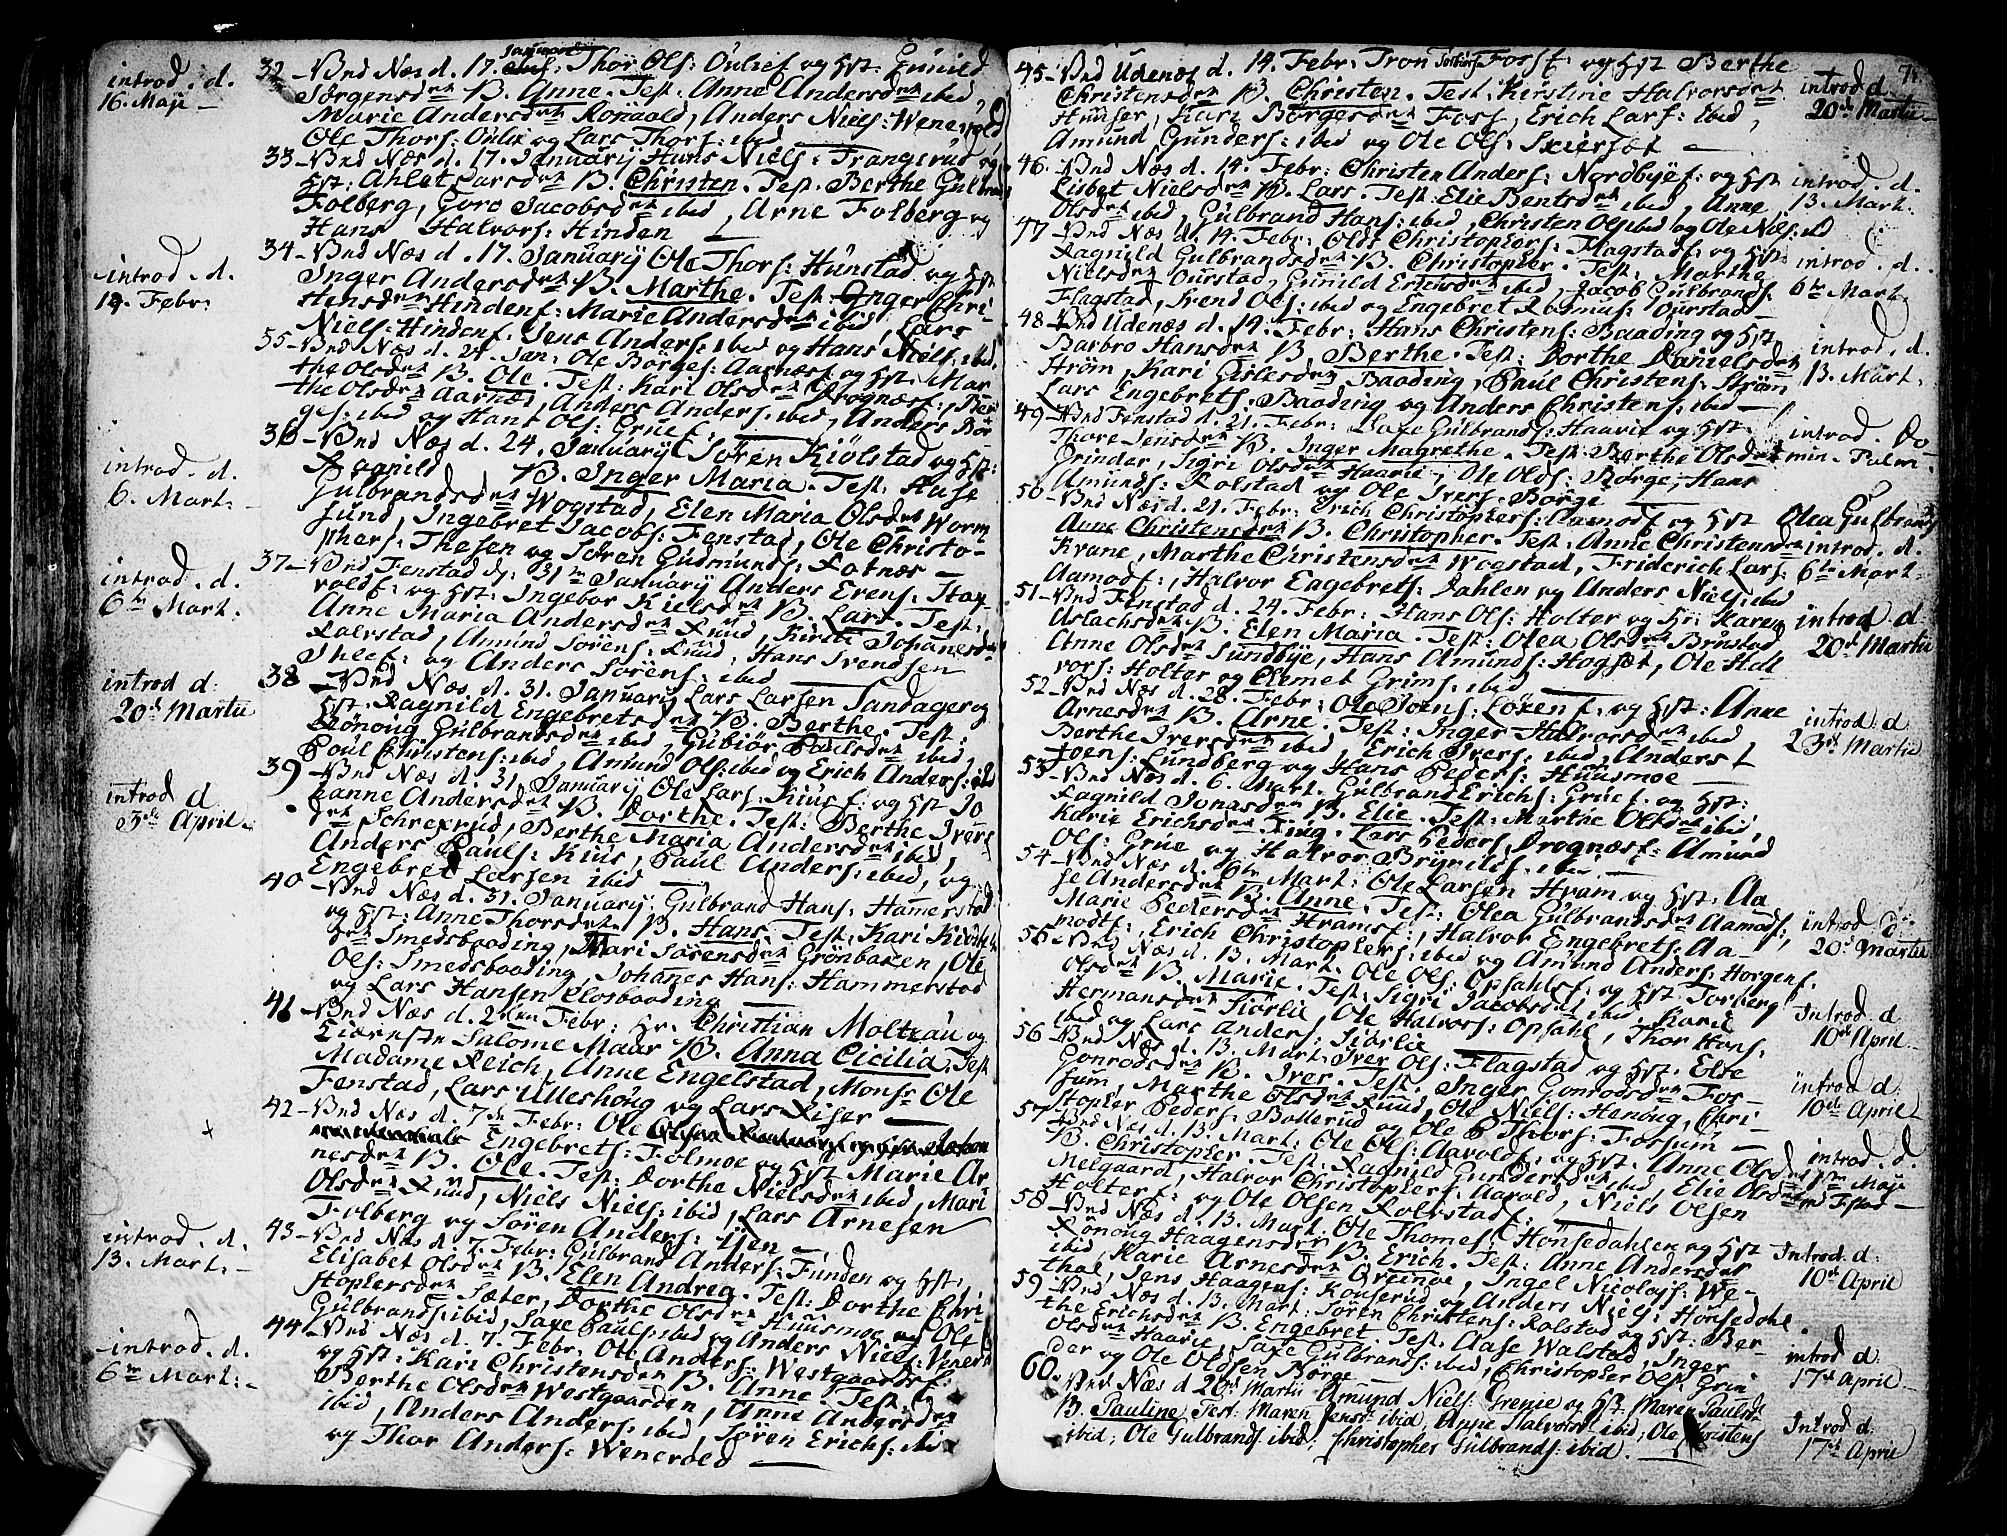 introd. d.
16. Maji –
32 – Bnd Næs d. 17. January Thor Ols: Oulie f og Hst: Gunild
Jørgensdtr B. Anne. Test: Anne Andersdtr ibid,
Marie Andersdtr Romaald, Anders Niels: Wenevold
Ole Thors: Oulie og Lars Thors: ibid –
33 – Bnd Næs d. 17. January Hans Niels: Trangerud og
Hst: Ahlet Larsdtr B. Christen. Test. Berthe Gulbrands
Folberg, Goro Jacobsdtr ibid, Arne Folberg og
Hans Halvors: Hinden –
introd. d.
14. Febr:
34 – Bnd Næs d. 17. January Ole Thors: Hunstad og Hst
Inger Andersdtr B. Marthe. Test. Inger Chri-
stensdtr Hinden f: Marie Andersdtr ibid, Lars
Niels: Hinden f: Jens Anders: ibid og Hans Niels: ibid
35 – Bnd Næs d. 24. Jan: Ole Børges: Aarnæs f og Hst: Mar-
the Olsdtr B. Ole. Test: Kari Olsdtr Drognæs f: Ber
the Olsdtr Aarnæs, Anders Anders: ibid, Anders Bør
ges: ibid og Hans Ols: Grue f: –
introd. d.
6. Mart: –
36 – Bnd Næs d. 24. January Søren Kiølstad og Hst:
Ragnild B. Inger Maria. Test: Aase
Gulbrandsdtr Wogstad, Elen Maria Olsdtr Worm
sund, Ingebret Jacobs: Fenstad, Ole Christo-
phers: Thesen og Søren Gudmunds: Rotnæs –
introd. d.
6te Mart.
37 – Bnd Fenstad d: 31te January Anders Erens: Hav-
vold f: og Hst: Ingebor Kielsdtr B. Lars. Test:
Anne Maria Andersdtr Ruud, Kirsti Johanesdtr
Rolvstad, Amund Sørens: Ruud, Hans Svendsen
Ihle f: og Anders Sørens: ibid –
introd d:
20de Martii
38 – Bnd Næs. d. 31. January Lars Larsen Sandager og
Hst. Ragnild Engebretsdtr B. Berthe. Test:
Rønoug Gulbrandsdtr ibid, Gubiør Paulsdtr ibid,
Poul Christens: ibid, Amund Ols: ibid og Erich Anders: ibid
introd d
3die April –
39 – Bnd Næs d. 31. January Ole Lars: Kius f: og Hst Jo
hanne Andersdtr B. Dorthe. Test: Berthe Ivers
dtr Schrexrud, Berthe Maria Andersdtr ibid,
Anders Pauls: Kius, Paul Anders: ibid, og
Engebret Larsen ibid –
40 – Bnd Næs d. 31. January: Gulbrand Hans: Hamerstad
og Hst: Anne Thorsdtr B. Hans. Test: Kari
dtr Smedsbaading, Mari Sørensdtr Grønbaken, Ole
Ols: Smedsbaading, Johanes Hans: Hammerstad
og Lars Hansen Closbaading –
41 – Bnd Næs d. 2den Febr: Hr. Christian Moltzau og
Salome Maar B. Anna Cicilia. Test
Madame Reich, Anne Engelstad, Monsr Ole
Fenstad, Lars Ulleshoug og Lars Riser –
42 – Bnd Næs d. 7de Febr: Ole
Engebrets: Folmoe og Hst Marie Ar
nesdtr B. Ole. Test: Dorthe Nielsdtr ibid, Mari
Olsdtr Ruud, Niels Niels: ibid, Lars Arnesen
Folberg og Søren Anders: Ujen –
introd. d.
13. Mart: –
43 – Bnd Næs d. 7. Febr: Gulbrand Anders: Funden og Hst:
Elisabet Olsdtr B. Elen Andrea. Test: Dorthe Chri-
stophersdtr Sæter, Dorthe Olsdtr Huusmoe og Ole
Gulbrands: ibid, Saxe Pauls: ibid og Anders Niels: Wenevold
– introd. d.
6te Mart: –
44 – Bnd Næs d. 7. Febr. Ole Anders: Westgaard f:
og Hst: Kari Christensdtr B. Anne. Test:
Berthe Olsdtr Westgaarden, Anne Andersdtr
ibid, Anders Anders: ibid, Søren Erichs: ibid
og Thor Anders: Wenevold –
45 – Bnd Udenæs d. 14. Febr: Tron Torbiørs: Foss f: og Hst Berthe
Christensdtr B. Christen. Test. Kirstine Halvorsdtr
Huuser, Kari Børgesdtr Foss, Erich Lars: ibid,
Amund Gunders: ibid og Ole Ols: Skierset –
introd d.
20de Martii –
46. – Bnd Næs d. 14. Febr: Christen Anders: Nordbye f: og Hst
Lisbet Nielsdtr B. Lars. Test: Elie Bentsdtr ibid, Anne
Olsdtr ibid, Gulbrand Hans: ibid, Christen Ols: ibid og Ole Niels: ibid
introd. d.
13. Mart.
47 – Bnd Næs d. 14. Febr: Ole Christophers: Flagstad f: og Hst:
Ragnild Gulbrandsdtr B. Christopher. Test: Marthe
Nielsdtr Ourstad, Gunild Erichsdtr ibid, Jacob Gulbrands:
Flagstad, Svend Ols: ibid og Engebret Rasmus: Ourstad –
introd. d.
6te Mart.
48 – Bnd Udenæs d. 14. Febr: Hans Christens: Baading og Hst
Barbro Hansdtr B. Berthe. Test: Dorthe Danielsdtr
Strøm, Kari Gislesdtr Baading, Paul Christens: Strøm
Lars Engebrets: Baading og Anders Christens: ibid –
introd. d.
13. Mart.
49 – Bnd Fenstad d. 21. Febr: Saxe Gulbrands: Haavie og Hst
Thore Jensdtr B. Inger Magrethe. Test: Berthe Olsdtr
Grinder, Sigri Olsdtr Haavie, Ole Olds: Børge, Hans
Amunds: Rolstad og Ole Ivers: Børge –
introd. Do-
min. Palm.
50 – Bnd Næs d. 21. Febr: Erich Christophers: Aamods f og Hst
Anne Christensdtr B. Christopher. Test: Anne Christensdtr
Krane, Marthe Christensdtr Wogstad, Friderich Lars:
Aamods f:, Halvor Engebrets: Dahlen og Anders Niels: ibid
Olea Gulbrands
introd. d.
6te Mart:
51 – Bnd Fenstad d. 24. Febr: Hans Ols: Holter og Hst: Karen
Aslachsdtr B. Elen Maria. Test: Olea Olsdtr Brustad,
Anne Olsdtr Sundbye, Hans Amunds: Hagset, Ole Hal
vors: Holter og Clemet Grims: ibid –
introd d:
20de Martii
52 – Bnd Næs d. 28. Febr: Ole Joens: Løken f: og Hst: Anne
Arnesdtr B. Arne. Test: Inger Halvorsdtr ibid
Berthe Iversdtr ibid, Erich Ivers: ibid, Anders
Joens: Lundberg og Hans Peders: Huusmoe –
introd: d
23de Martii
53 – Bnd Næs d. 6. Mart. Gulbrand Erichs: Grue f. og Hst:
Ragnild Jonasdtr B. Elie. Test: Marthe Olsdtr ibid,
Karie Erichsdtr Ring, Lars Peders Drognæs f: Amund
Ols: Grue og Halvor Brynilds: ibid –
54 – Bnd Næs d. 6te Mart: Ole Larsen Hvam og Hst: Aa
se Andersdtr B. Anne. Test: Olea Gulbrandsdtr Aamods f:,
Marie Pedersdtr Hvams f, Halvor Engebrets: Aa-
mods f:, Erich Christophers: ibid og Amund Anders: Horgen f.
introd d:
20de Martii
55 – Bnd Næs d. 13. Mart. Ole Ols: Opsahls f: og Hst Torberg
Olsdtr B. Marie. Test: Sigri Jacobsdtr ibid, Karie
Hermansdtr Siørlie, Ole Halvors: Opsahl, Thor Hans:
ibid og Lars Anders: Siørlie –
Introd. d
10de April –
56 – Bnd Næs d. 13. Mart: Iver Ols: Flagstad og Hst. Else
Gonrodsdtr B. Iver. Test. Inger Gonrodsdtr Fos-
sum, Marthe Olsdtr Ruud, Ole Niels: Henoug, Chri-
stopher Peders: Bollerud og Ole Thors: Fossum –
introd d:
10de April –
57 Bnd Næs d. 13. Mart: Ole Ols: Aavold f: og Hst: Anne Olsdtr
B. Christopher. Test. Ragnild Gundersdtr ibid, Elie Olsdtr
Melgaard, Halvor Christophers: Aavold, Niels Olsen
Holter f: og Ole Olsen Rolvstad f: –
introd. d.
1ste Maji
ved Fstad –
58 – Bnd Næs d. 13. Mart. Ole Thomes: Hønsedahlen og Hst
Rønoug Haagensdtr B. Erich. Test: Anne Andersdtr
ibid, Karie Arnesdtr Greinoe, Ingel Nicolajs: We-
thal, Jens Haagens: Konserud og Anders Niels: Hønsedahl
Introd. d:
10de April
59 – Bnd Næs d. 13. Mart: Søren Christens: Rolstad og Hst: Ber-
the Erichsdtr B. Engebret. Test. Aase Walstad, Inger
Olsdtr Haavie, Saxe Gulbrands: ibid, Christopher Ols: Grin
der og Ole Oldsen Børge –
introd d:
17de April –
60. – Bnd Næs d 20de Martii Amund Niels: Grenie og Hst. Maren Paulsd
B. Pauline Test: Maren Jensd: ibid, Anne Halvorsd: ibid; Ole Christens
ibid, Ole Gulbrands ibid, Christopher Gulbrands: ibid. –
Introd d:
17de April